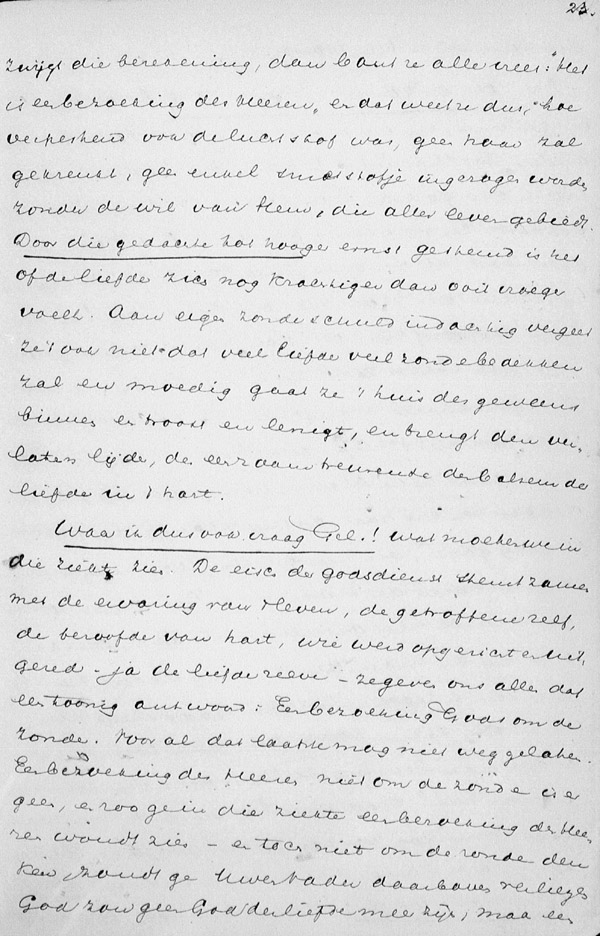 23.
zwijgt die berekening, dan bant ze alle vrees: "Het
is een bezoeking des Heeren, en dat weet ze dus, "hoe
verpestend ook de luchtstof was, geen haar zal
gekrenkt, geen enkel smetstofje ingezogen worden
zonder de wil van Hem, die alle leven gebiedt.
Door die gedachte tot hooger ernst gestemd is het
of de liefde zich nog krachtiger dan ooit vroeger
voelt. Aan eigen zondeschuld indachtig vergeet
ze 't ook niet dat veel liefde veel zonde bedekken
zal en moedig gaat ze 't huis des geweens
binnen en troost en lenigt, en brengt den ver-
laten lijder, de eenzaam treurende den balsem der
liefde in 't hart.
Waar ik dus ook vraag Gel.! wat moeten we in
die ziekte zien. De eisch der godsdienst stemt zamen
met de ervaring van 't leven, de getroffene zelf,
de beroofde van hart, wie werd opgericht en uit-
gered - ja de liefde zelve - ze geven ons allen dat
eentoonig antwoord: Een bezoeking Gods om de
zonde. Voor al dat laatste mag niet weg gelaten.
Een bezoeking des Heeren niet om de zonde is er
geen, en zoo ge in die ziekte een bezoeking des Hee
ren woudt zien - en toch niet om de zonde den
ken, zoudt ge Uwen Vader daarboven verliezen
God zou geen God der liefde mee zijn, maar een